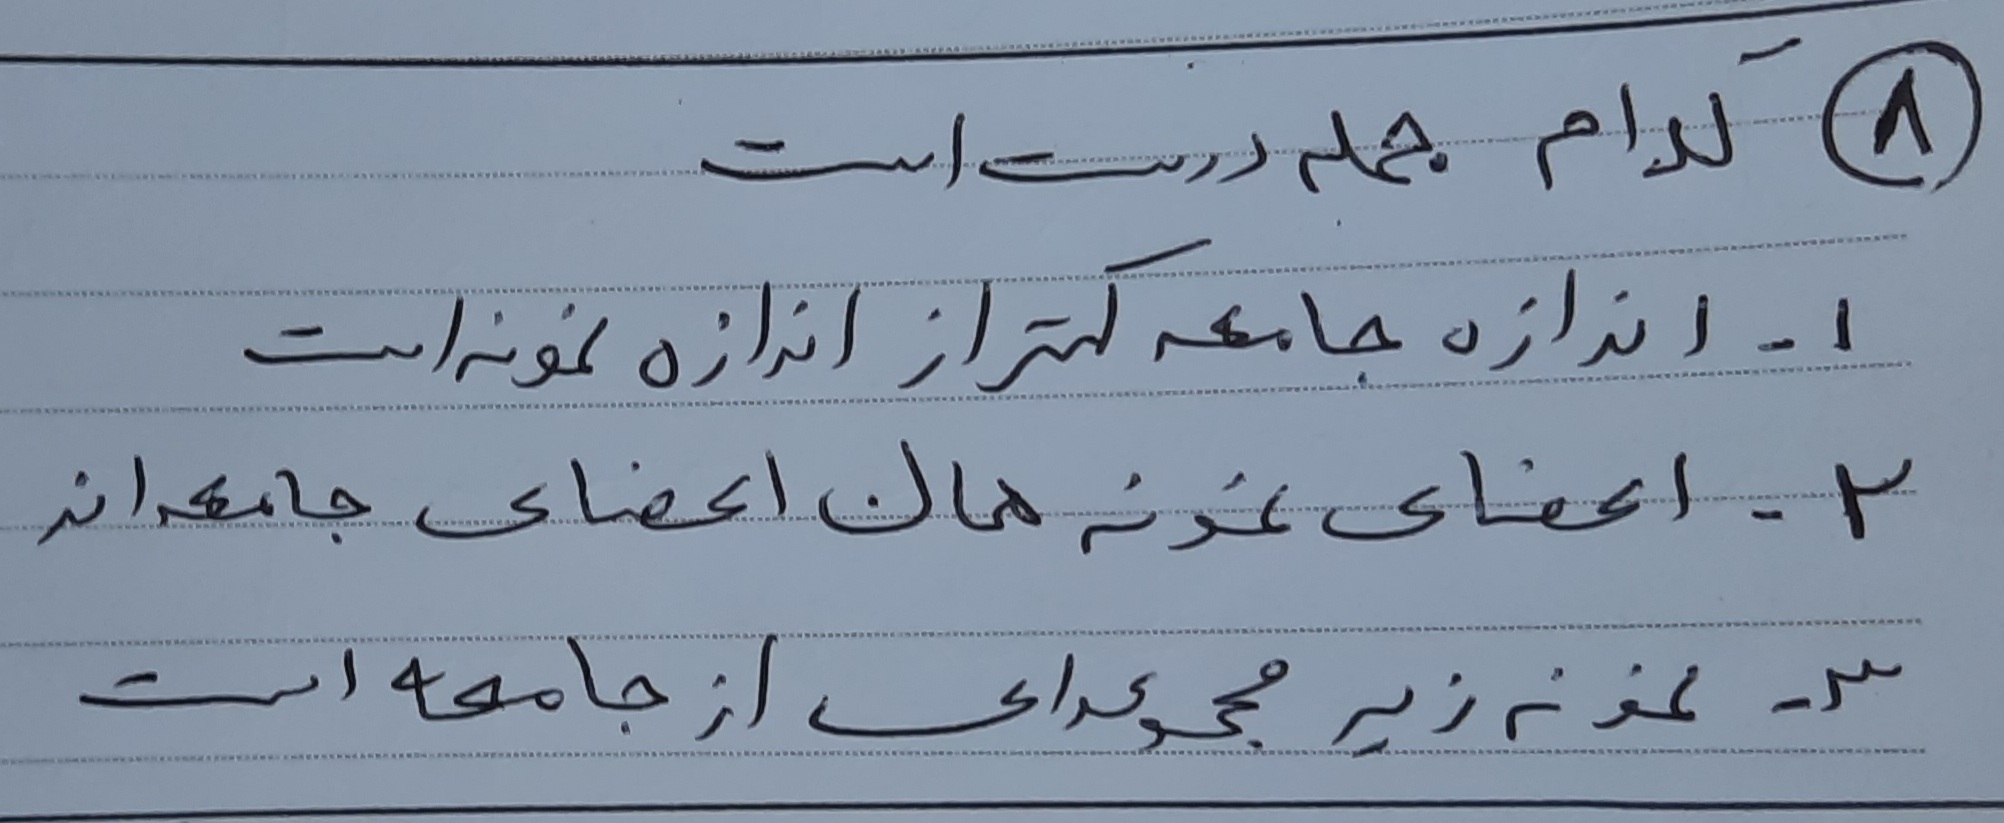 ۸ کدام جمله درست است
۱- اندازه جامعه کمتر از اندازه نمونه است
۲- اعضای نمونه همان اعضای جامعه اند
۳- نمونه زیر مجموعه ای از جامعه است